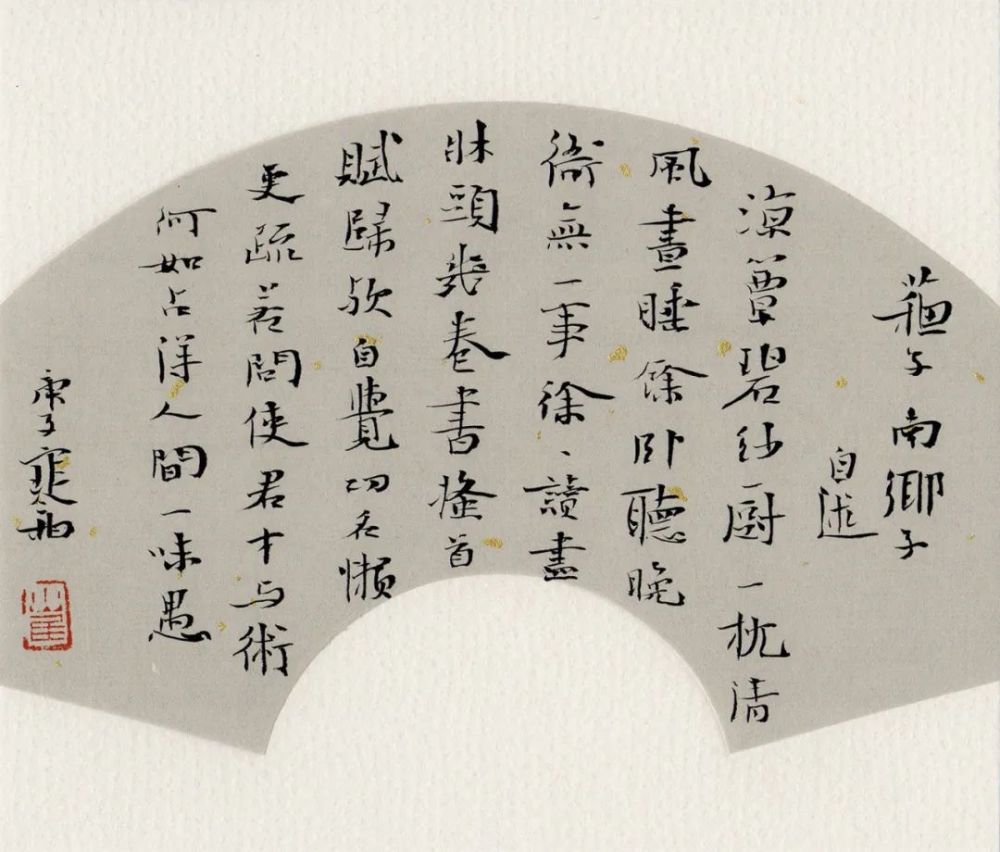 蘓子 南鄉子
自述
涼簟碧紗廚一枕清
風晝睡餘卧聽晚
衙無一事徐、讀盡
牀頭幾卷書搔首
賦歸歟自覺功名懶
更疏若問使君才与術
何如占得人間一味愚
庚子寒